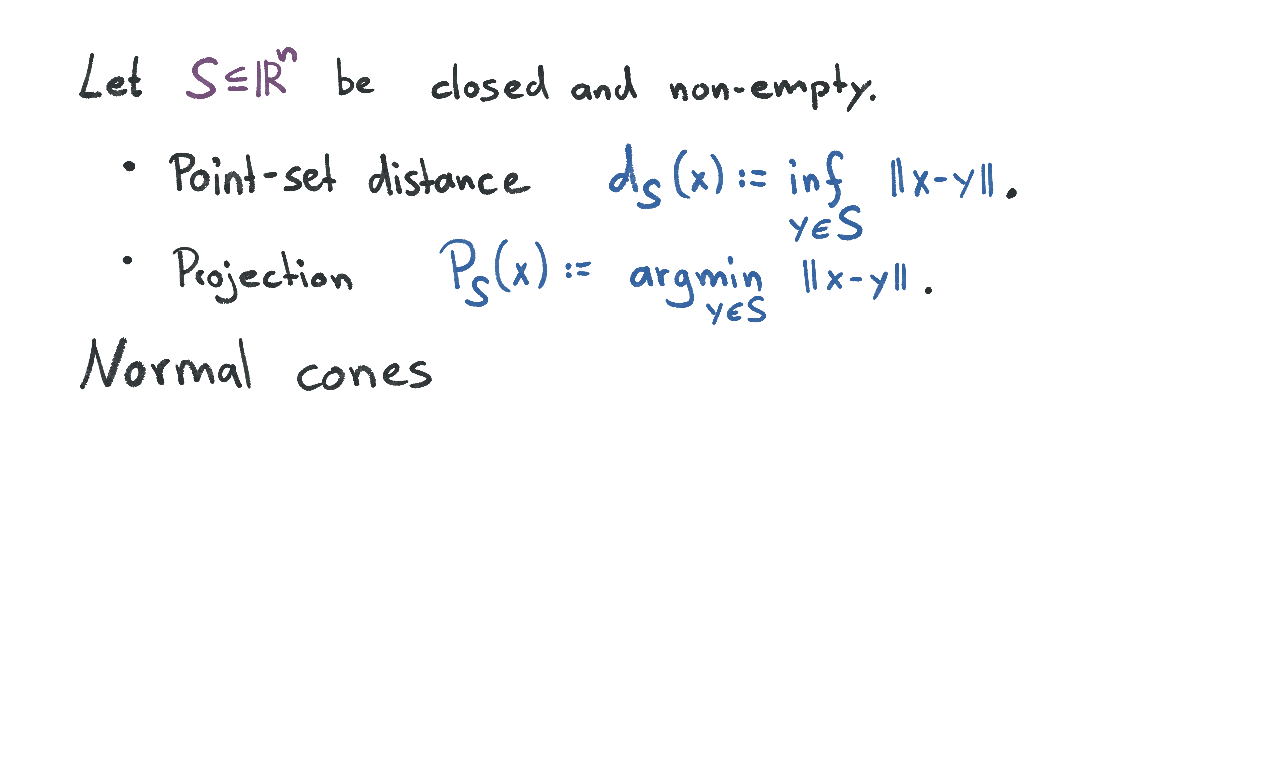 Let S⊆ℝⁿ be closed and non-empty.
• Point-set distance d_S(x) := inf_{y∈S} ||x-y||.
• Projection P_S(x) := argmin_{y∈S} ||x-y||.
Normal cones